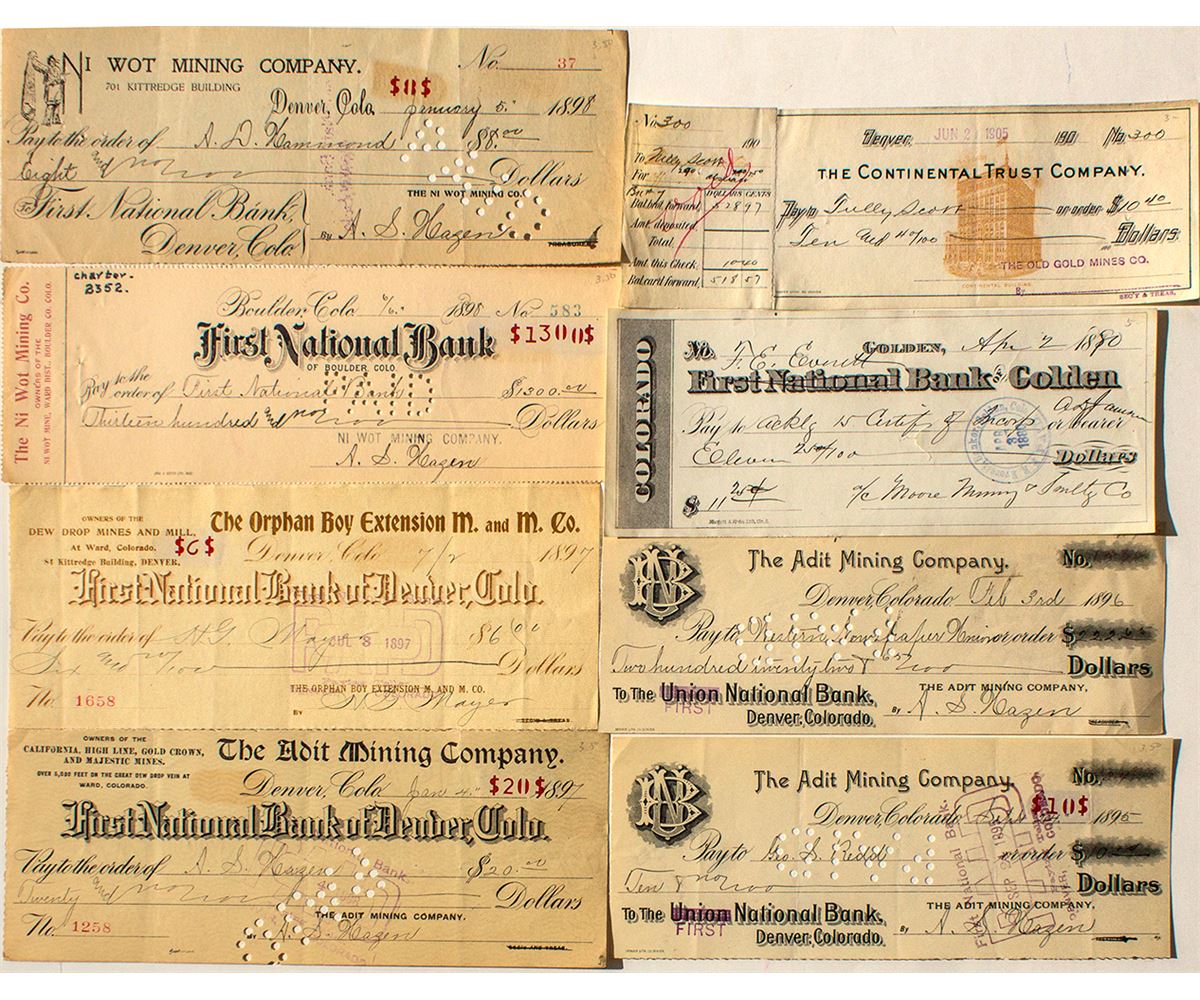 NI WOT MINING COMPANY.
No. 37
701 KITTREDGE BUILDING
$8$
Denver, Colo. January 5. 1898
Pay to the order of A. D. Hammond $8.00
Eight and no/100 Dollars
THE NI WOT MINING CO.
To First National Bank,
Denver, Colo.
By A. S. Hazen
TREASURER
3.50
charter.
B352.
The Ni Wot Mining Co.
OWNERS OF THE
NI WOT MINE, WARD DIST. BOULDER CO. COLO.
Boulder Colo 1898 No 583
First National Bank
$1300$
OF BOULDER COLO.
Pay to the
order of First National Bank $1300.00
Thirteen hundred and no/100 Dollars
NI WOT MINING COMPANY.
A. S. Hazen
3.50
OWNERS OF THE
DEW DROP MINES AND MILL,
At Ward, Colorado.
84 Kittredge Building, DENVER.
$6$
The Orphan Boy Extension M. and M. Co.
Denver, Colo 7/2 1897
First National Bank of Denver, Colo.
Pay to the order of H. G. Mayer $6.00
JUL 3 1897
Six and no/100 Dollars
THE ORPHAN BOY EXTENSION M. AND M. CO.
No. 1658
BY H. G. Mayer
OWNERS OF THE
CALIFORNIA, HIGH LINE, GOLD CROWN,
AND MAJESTIC MINES.
OVER 5,000 FEET ON THE GREAT DEW DROP VEIN AT
WARD, COLORADO.
The Adit Mining Company.
Denver, Colo Jan 4. $20$ 1897
First National Bank of Denver, Colo.
Pay to the order of A. S. Hazen $20.00
Twenty and no/100 Dollars
THE ADIT MINING COMPANY.
No. 1258
By A. S. Hazen
No 300
190
To Tully Scott
For
DOLLARS CENTS
Bal. bro't forward, 528 97
Amt. deposited,
Total
Amt. this Check, 10 40
Bal. car'd forward, 518 57
Denver, JUN 2 1905 190 No. 300
THE CONTINENTAL TRUST COMPANY.
Pay to Tully Scott or order $10.40
Ten and 40/100 Dollars
THE OLD GOLD MINES CO.
CONTINENTAL BUILDING
By SEC'Y & TREAS.
COLORADO
No. F. E. Everett GOLDEN, Apr 2 1880
First National Bank of Golden
Pay to acklg & Certif of Incorp or bearer
Eleven 25/100 Dollars
$ 11 25 a/c Moore Mining & Smltg Co
The Adit Mining Company. No.
Denver, Colorado, Feb 3rd 1896
Pay to Western Newspaper Union or order $222.65
Two hundred twenty two & 65/100 Dollars
To The Union National Bank,
FIRST
Denver, Colorado.
THE ADIT MINING COMPANY,
By A. S. Hazen
TREASURER
The Adit Mining Company. No.
$10$
Denver, Colorado, 1895
Pay to Geo. S. Redd or order $10.00
Ten & no/100 Dollars
To The Union National Bank,
FIRST
Denver, Colorado.
THE ADIT MINING COMPANY,
By A. S. Hazen